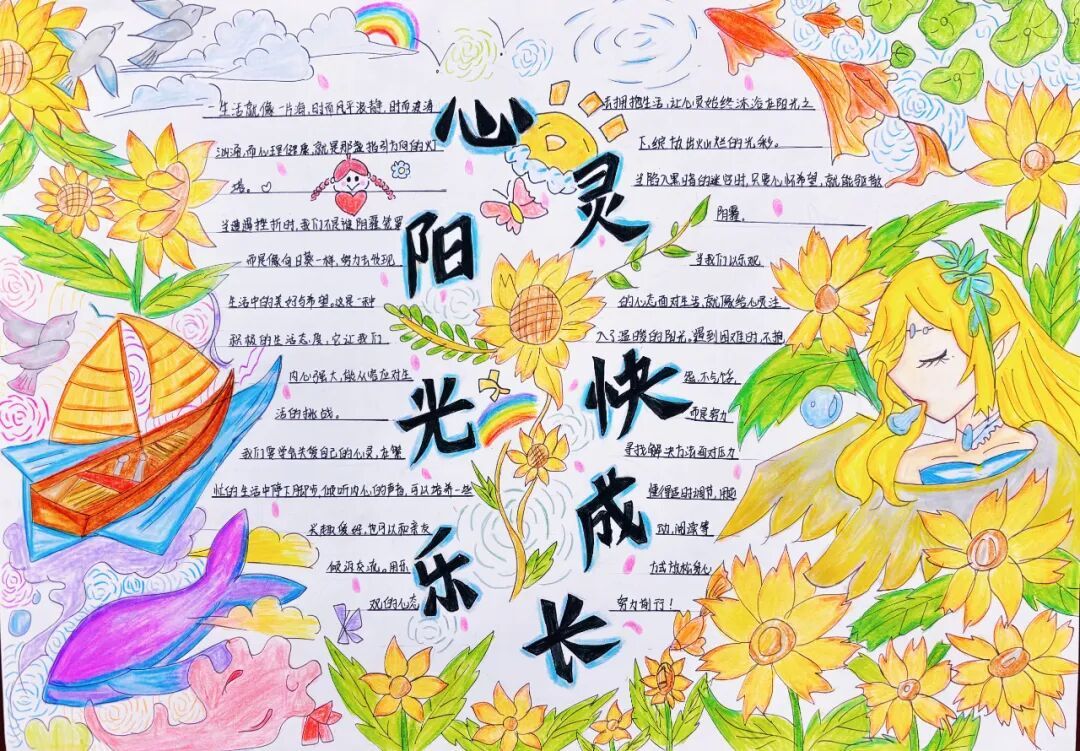 心灵
阳光
快乐
成长
生活就像一片海,时而风平浪静,时而波涛
汹涌,而心理健康,就是那盏指引方向的灯
塔。
当遭遇挫折时,我们不是被阴霾笼罩
而是像向日葵一样,努力去发现
生活中的美好与希望。这是一种
积极的生活态度,它让我们
内心强大,能从容应对生
活的挑战。
我们要学会关爱自己的心灵,在繁
忙的生活中停下脚步,倾听内心的声音,可以培养一些
兴趣爱好,也可以和亲友
倾诉交流。用乐
观的心态
去拥抱生活,让心灵始终沐浴在阳光之
下,绽放出灿烂的光彩。
当陷入黑暗的迷茫时,只要心怀希望,就能驱散
阴霾。
当我们以乐观
的心态面对生活,就像给心灵注
入了温暖的阳光。遇到困难时,不抱
怨,不气馁,
而是努力
寻找解决方法面对压力
懂得适时调节,用运
动,阅读等
方式放松身心
努力前行!